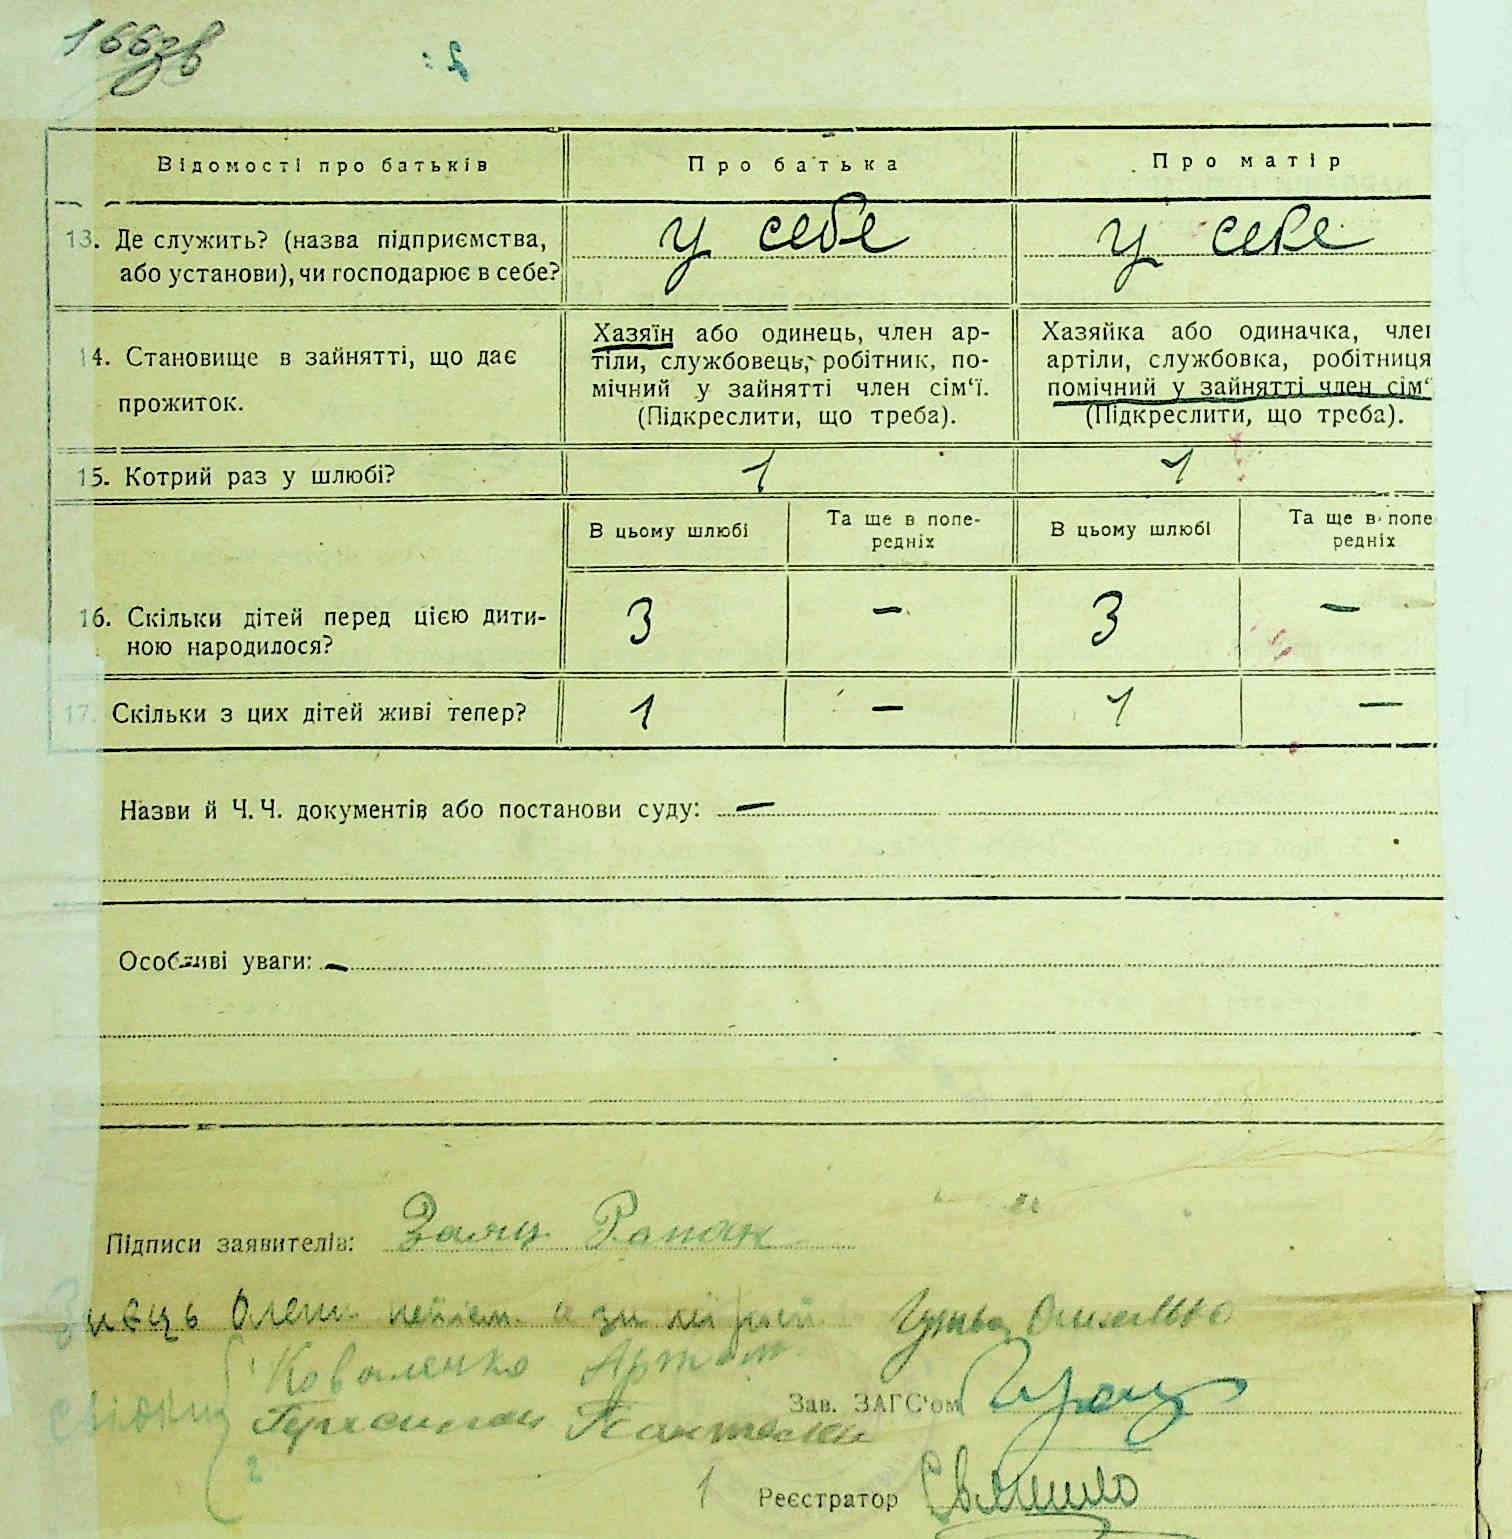 166зв
2
Відомості про батьків
Про батька
Про матір
13. Де служить? (назва підприємства,
або установи), чи господарює в себе?
у себе
у себе
14. Становище в зайнятті, що дає
прожиток.
Хазяїн або одинець, член ар-
тіли, службовець, робітник, по-
мічний у зайнятті член сім‘ї.
(Підкреслити, що треба).
Хазяйка або одиначка, член
артіли, службовка, робітниця
помічний у зайнятті член сім‘
(Підкреслити, що треба).
15. Котрий раз у шлюбі?
1
1
В цьому шлюбі
Та ще в попе-
редніх
В цьому шлюбі
Та ще в попе
редніх
16. Скільки дітей перед цією дити-
ною народилося?
3
—
3
—
17. Скільки з цих дітей живі тепер?
1
—
1
—
Назви й Ч. Ч. документів або постанови суду: —
Особливі уваги: —
Підписи заявителів: Заяц
Коваленко Артем
Зав. ЗАГС‘ом
Реєстратор